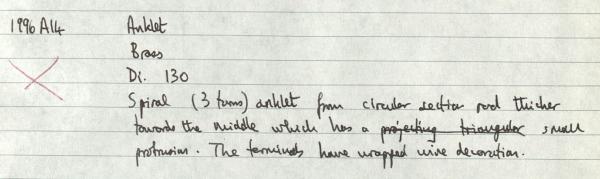 1996 A14 Anklet
Brass
Di. 130
Spiral (3 turns) anklet from circular section rod thicker
towards the middle which has a projecting triangular small
protrusion. The terminals have wrapped wire decoration.